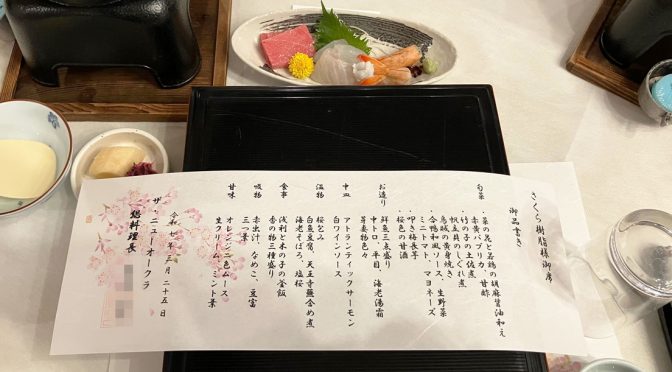 さくら樹脂様御席
御品書き
旬菜
・菜の花と若鶏の胡麻醤油和え
・赤黄パプリカ、甘酢
・竹の子の土佐煮
・帆立貝のしぐれ煮
・鳥城の黄身焼き
・合鴨和風ソース、生野菜
ミニトマト、マヨネーズ
・叩き梅長芋
・桜色の甘酒
お造り
鮮魚三点盛り
中トロ 平目 海老湯霜
芽妻物色々
中皿
アトランティックサーモン
白ワインソース
温物
桜包み
白魚豆腐、天王寺蕪含め煮
海老そぼろ、塩桜
食事
浅利と木の子の釜飯
香の物三種盛り
吸物
赤出汁、なめこ、豆富
三つ葉
甘味
オレンジ二色ムース
生クリーム、ミント葉
令和七年三月二十五日
ザ・ニューオークラ
総料理長